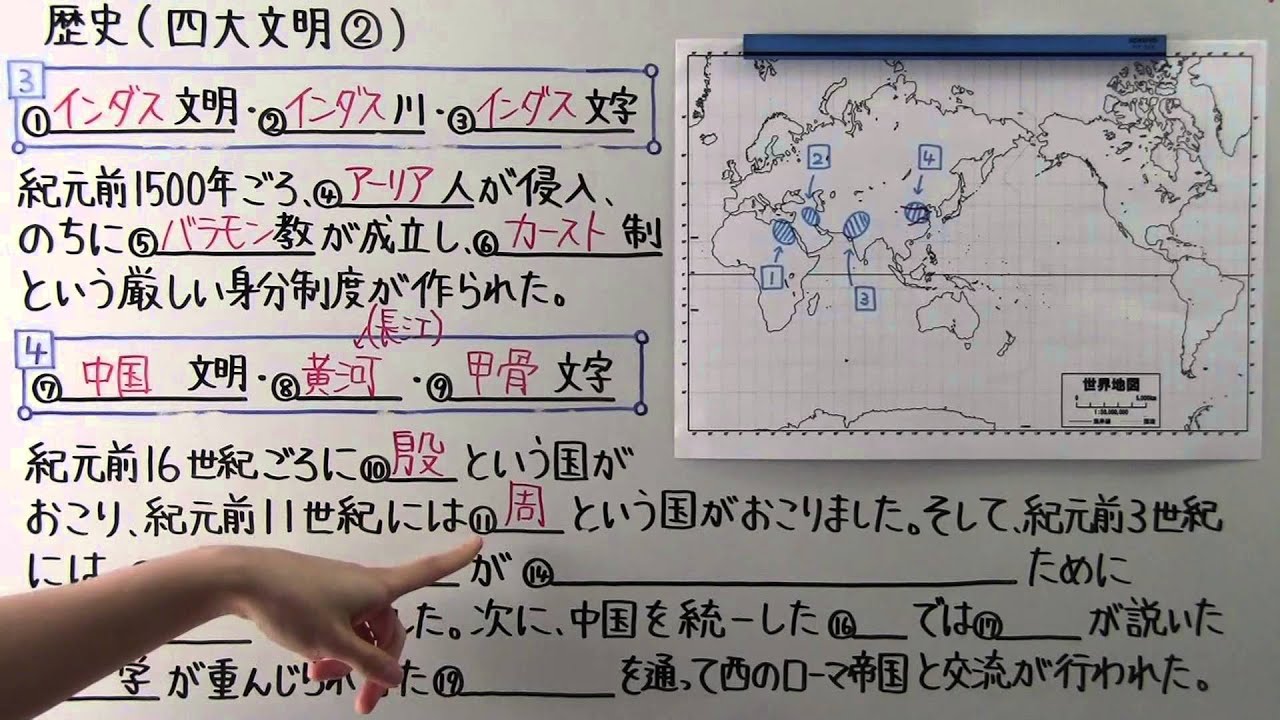 歴史(四大文明②)
3
①インダス文明・②インダス川・③インダス文字
紀元前1500年ごろ、④アーリア人が侵入、
のちに⑤バラモン教が成立し、⑥カースト制
という厳しい身分制度が作られた。
(長江)
4
⑦中国 文明・⑧黄河・⑨甲骨文字
紀元前16世紀ごろに⑩殷という国が
おこり、紀元前11世紀には⑪周という国がおこりました。そして、紀元前3世紀
には が⑭ ために
した。次に、中国を統一した⑯ では⑰ が説いた
学が重んじられ た⑲ を通って西のローマ帝国と交流が行われた。
2
4
1
3
世界地図